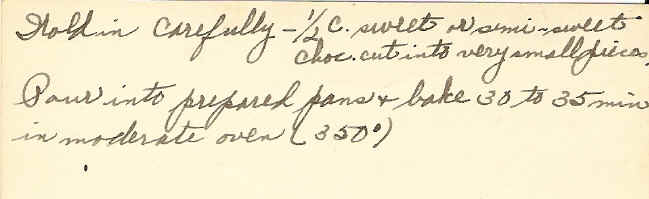 Fold in carefully - 1/2 c. sweet or semi-sweet
choc. cut into very small pieces,
Pour into prepared pans + bake 30 to 35 min
in moderate oven (350°)